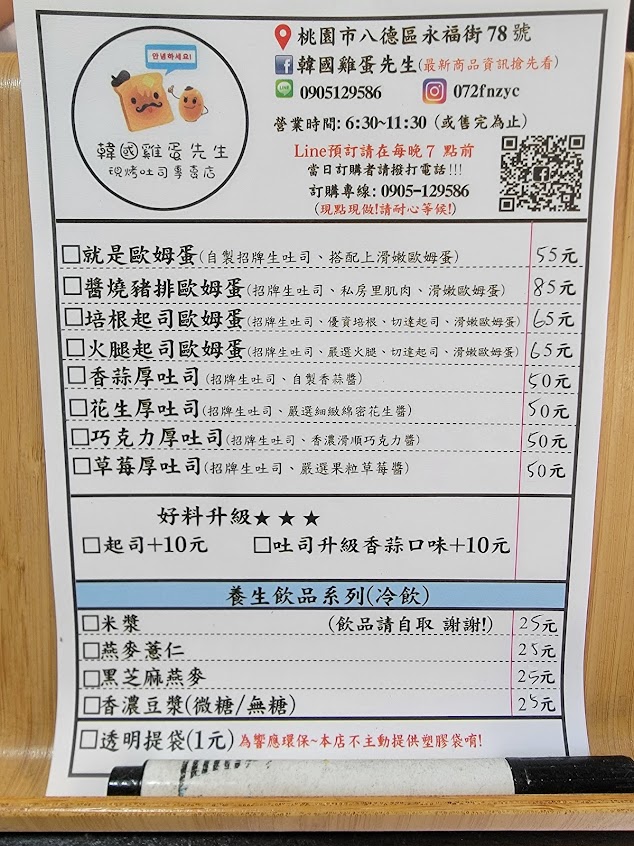 안녕하세요!
韓國雞蛋先生
現烤吐司專賣店
桃園市八德區永福街78號
韓國雞蛋先生(最新商品資訊搶先看)
LINE 0905129586 072fnzyc
營業時間: 6:30~11:30 (或售完為止)
Line預訂請在每晚7 點前
當日訂購者請撥打電話!!!
訂購專線: 0905-129586
(現點現做!請耐心等候!)
☐就是歐姆蛋(自製招牌生吐司、搭配上滑嫩歐姆蛋) 55元
☐醬燒豬排歐姆蛋(招牌生吐司、私房里肌肉、滑嫩歐姆蛋) 85元
☐培根起司歐姆蛋(招牌生吐司、優資培根、切達起司、滑嫩歐姆蛋) 65元
☐火腿起司歐姆蛋(招牌生吐司、嚴選火腿、切達起司、滑嫩歐姆蛋) 65元
☐香蒜厚吐司(招牌生吐司、自製香蒜醬) 50元
☐花生厚吐司(招牌生吐司、嚴選細緻綿密花生醬) 50元
☐巧克力厚吐司(招牌生吐司、香濃滑順巧克力醬) 50元
☐草莓厚吐司(招牌生吐司、嚴選果粒草莓醬) 50元
好料升級★★★
☐起司+10元 ☐吐司升級香蒜口味+10元
養生飲品系列(冷飲)
☐米漿 (飲品請自取 謝謝!) 25元
☐燕麥薏仁 25元
☐黑芝麻燕麥 25元
☐香濃豆漿(微糖/無糖) 25元
☐透明提袋(1元)為響應環保~本店不主動提供塑膠袋唷!